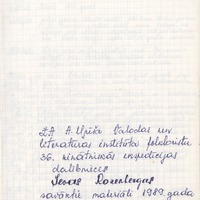 ZA A. Upīša Valodas un
literatūras institūta folkloristu
36. zinātniskās ekspedīcijas
dalībnieces
Ievas Rozenbergas
savāktie materiāli 1982. gada